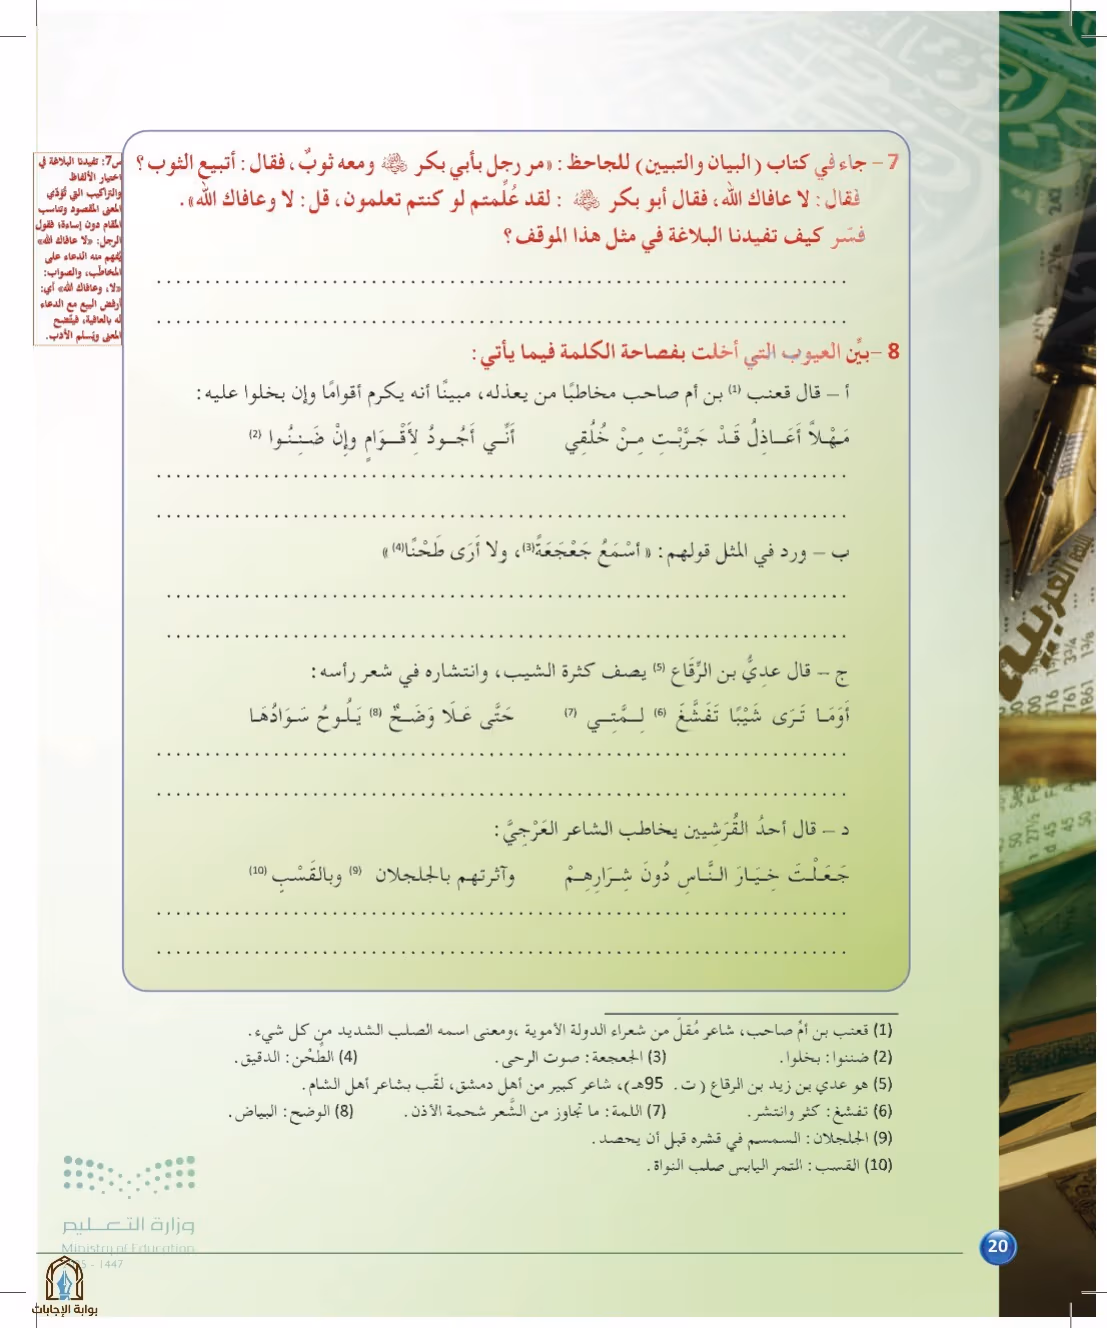 7 – جاء في كتاب (البيان والتبيين) للجاحظ : «مر رجل بأبي بكر رضي الله عنه ومعه ثوبٌ، فقال : أتبيع الثوب ؟
فقال : لا عافاك الله، فقال أبو بكر رضي الله عنه : لقد عُلِّمتم لو كنتم تعلمون، قل : لا وعافاك الله».
فسّر كيف تفيدنا البلاغة في مثل هذا الموقف ؟
س7: تفيدنا البلاغة في
اختيار الألفاظ
والتراكيب التي تُؤدّي
المعنى المقصود وتناسب
المقام دون إساءة؛ فقول
الرجل: «لا عافاك الله»
يُفهم منه الدعاء على
المخاطَب، والصواب:
«لا، وعافاك الله» أي:
أرفض البيع مع الدعاء
له بالعافية، فيتّضح
المعنى ويَسلم الأدب.
8 –بيِّن العيوب التي أخلت بفصاحة الكلمة فيما يأتي :
أ – قال قعنب (1) بن أم صاحب مخاطبًا من يعذله، مبينًا أنه يكرم أقوامًا وإن بخلوا عليه :
مَـهْـلاً أَعَــاذِلُ قَـدْ جَـرَّبْـتِ مِـنْ خُلُقِي أَنِّــي أَجُــودُ لِأَقْــوَامٍ وإِنْ ضَـنِـنُـوا (2)
ب – ورد في المثل قولهم : « أسْمَعُ جَعْجَعَةً(3)، ولا أَرَى طَحْنًا(4) »
ج – قال عديُّ بن الرِّقَاع (5) يصف كثرة الشيب، وانتشاره في شعر رأسه :
أَوَمَـا تَـرَى شَيْبًا تَفَشَّغَ (6) لِـمَّتِـي (7) حَتَّى عَـلَا وَضَـحٌ (8) يَـلُـوحُ سَـوَادُهَـا
د – قال أحدُ القُرَشِيين يخاطب الشاعر العَرْجِيَّ :
جَـعَـلْـتَ خِـيَـارَ الـنَّـاسِ دُونَ شِـرَارِهِـمْ وآثرتهم بالجلجلان (9) وبالقَسْبِ (10)
(1) قعنب بن أمِّ صاحب، شاعر مُقلّ من شعراء الدولة الأموية ،ومعنى اسمه الصلب الشديد من كل شيء .
(2) ضننوا : بخلوا . (3) الجعجعة : صوت الرحى . (4) الطِّحْن : الدقيق .
(5) هو عدي بن زيد بن الرقاع ( ت . 95هـ)، شاعر كبير من أهل دمشق، لقّب بشاعر أهل الشام .
(6) تفشغ : كثر وانتشر . (7) اللمة : ما تجاوز من الشَّعر شحمة الأذن . (8) الوضح : البياض .
(9) الجلجلان : السمسم في قشره قبل أن يحصد .
(10) القسب : التمر اليابس صلب النواة .
وزارة التعليم
Ministry of Education
- 1447
20
بوابة الإجابات